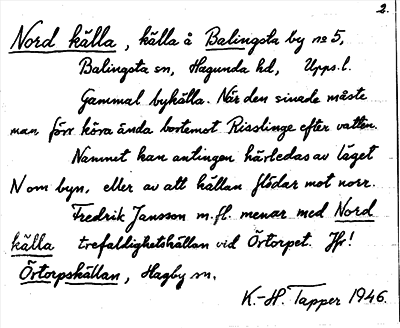 2.
Nord källa, källa å Balingsta by nº 5,
Balingsta sn, Hagunda hd, Upps. l.
Gammal bykälla. När den sinade måste
man förr köra ända bortemot Risslinge efter vatten.
Namnet kan antingen härledas av läget
N om byn, eller av att källan flödar mot norr.
Fredrik Jansson m.fl. menar med Nord
källa trefaldighetskällan vid Örtorpet. Jfr!
Örtorpskällan, Hagby sn.
K.-H. Tapper 1946.